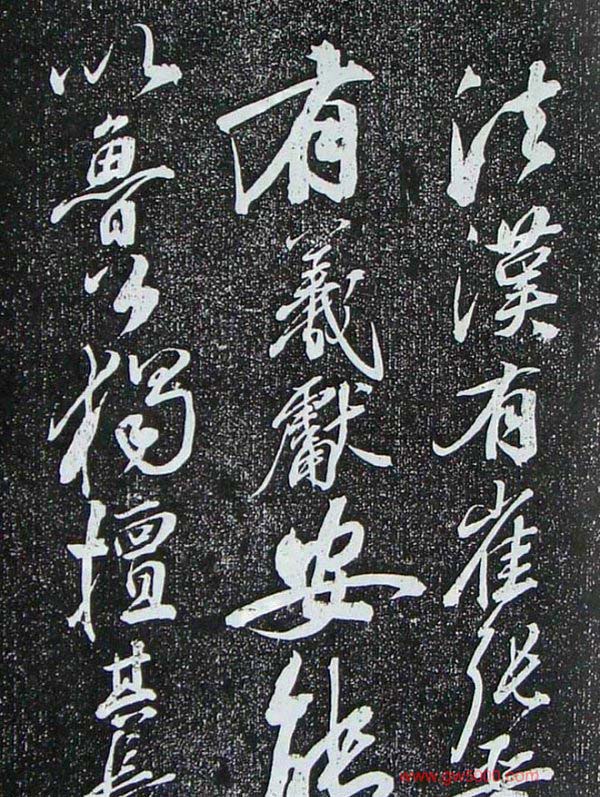 法漢有崔張
有羲獻安能
以魯公獨擅其長
www.gw5000.com